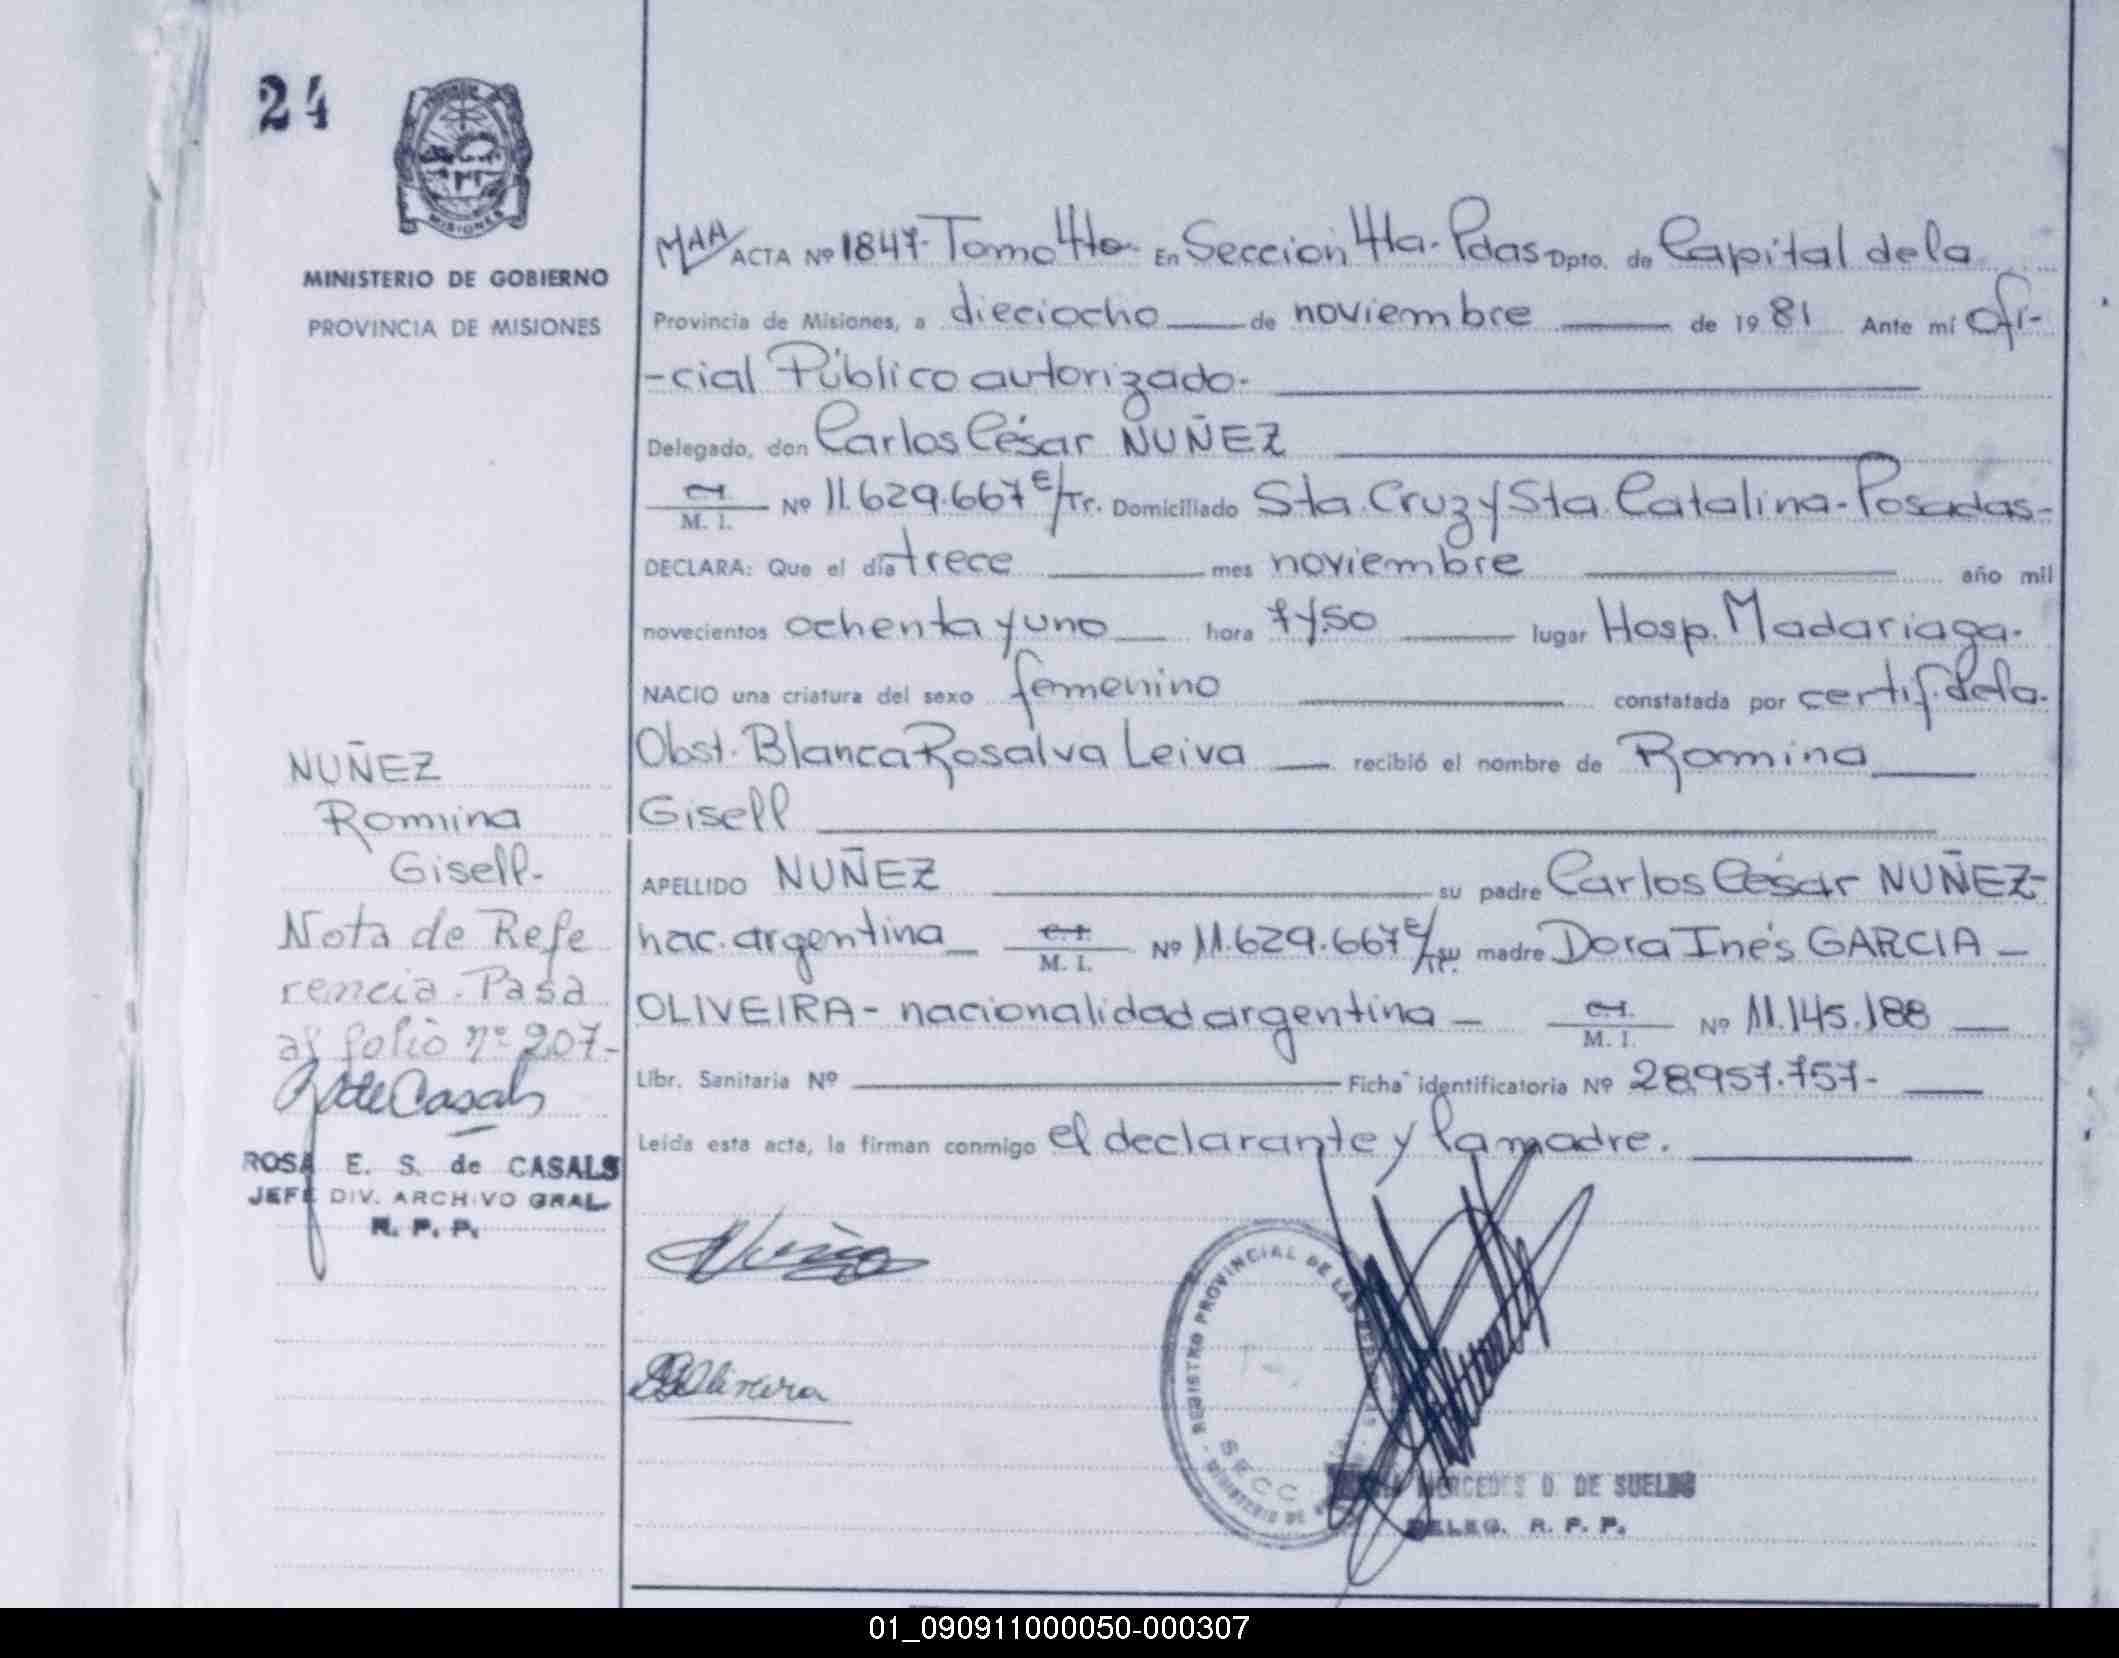 24
MISIONES
MINISTERIO DE GOBIERNO
PROVINCIA DE MISIONES
MAA ACTA Nº 1847- Tomo 4to- En Seccion 4ta. Pdas Dpto. de Capital de la
Provincia de Misiones, a dieciocho de noviembre de 19 81 Ante mí ofi-
-cial Público autorizado-
Delegado, don Carlos César NUÑEZ
C.I. M. I. Nº 11.629.667 E/Tr. Domiciliado Sta. Cruz y Sta. Catalina- Posadas-
DECLARA: Que el día trece mes noviembre año mil
novecientos ochenta y uno hora 7 y 50 lugar Hosp. Madariaga-
NACIO una criatura del sexo femenino constatada por certif. de la.
Obst. Blanca Rosalva Leiva recibió el nombre de Romina
Gisell
APELLIDO NUÑEZ su padre Carlos César NUÑEZ-
nac. argentina C.I. M. I. Nº 11.629.667 E/Tr. su madre Dora Inés GARCIA -
OLIVEIRA- nacionalidad argentina - C.I. M. I. Nº 11.145.188
Libr. Sanitaria Nº Ficha identificatoria Nº 28.957.757-
Leída esta acta, la firman conmigo el declarante y la madre.
NUÑEZ
Romina
Gisell-
Nota de Refe
rencia. Pasa
al folio nº 207.-
R de Casals
ROSA E. S. de CASALS
JEFE DIV. ARCHIVO GRAL.
R. P. P.
Oliveira
REGISTRO PROVINCIAL DE LAS
MINISTERIO DE
SECC
MERCEDES D. DE SUELDO
DELEG. R. P. P.
01_090911000050-000307